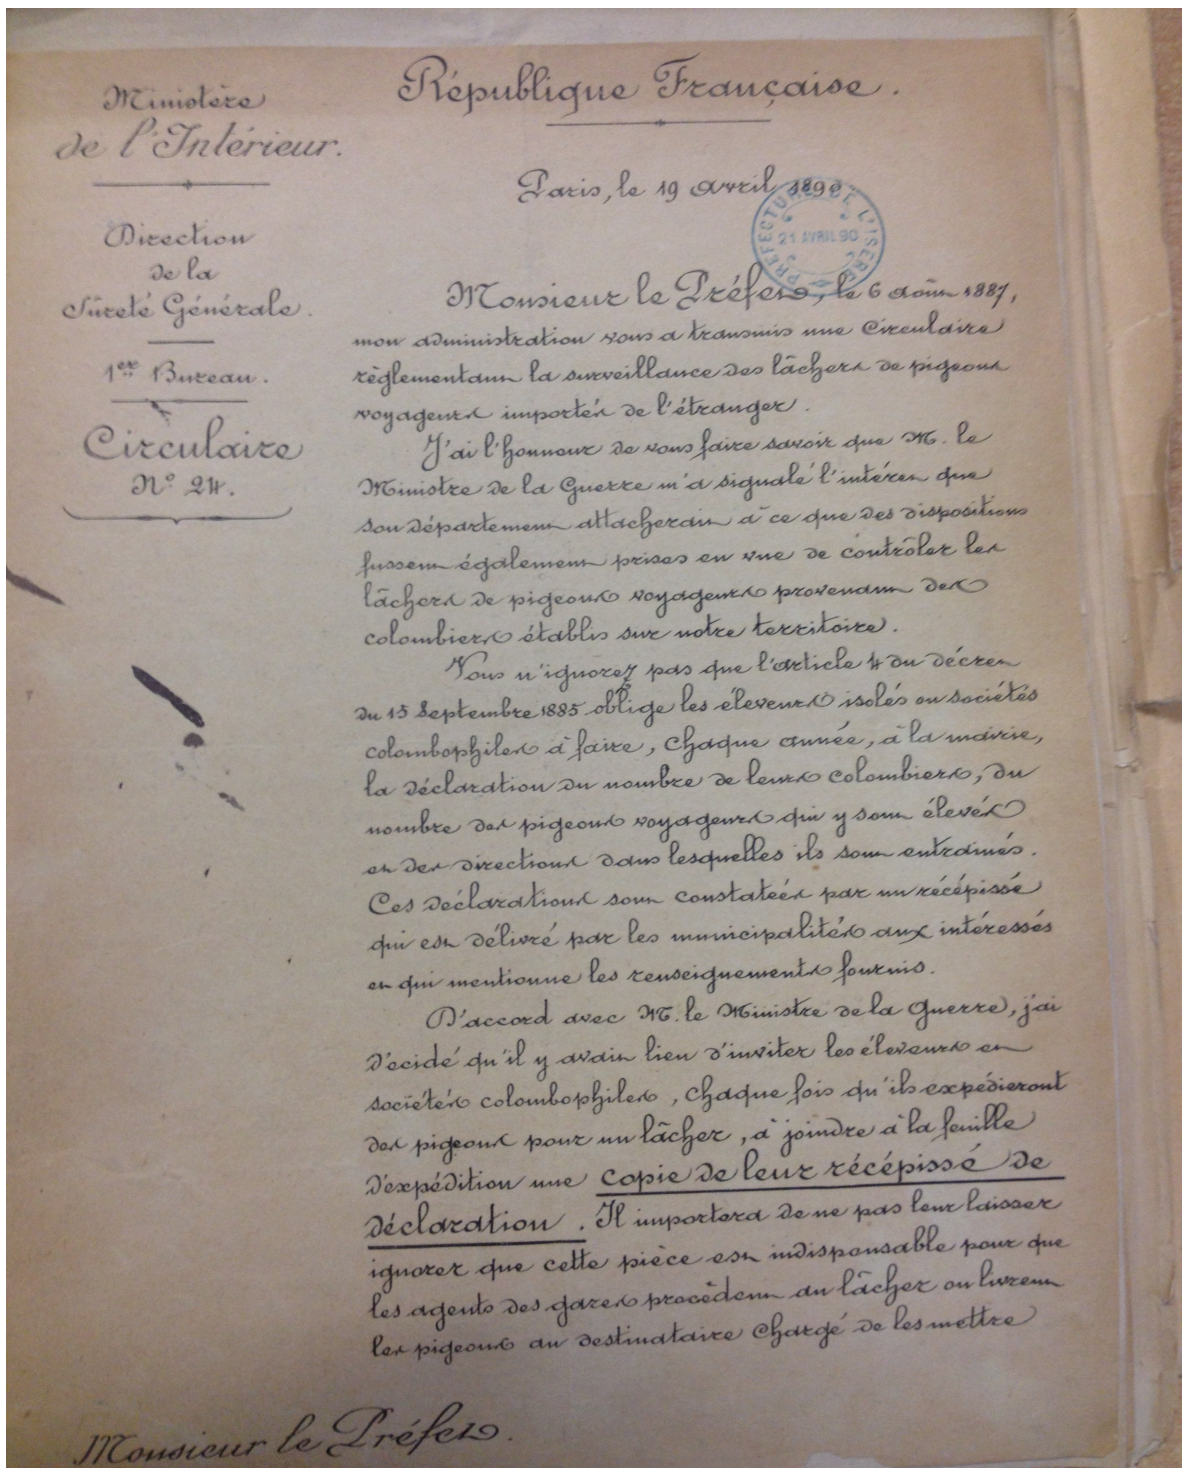 République Française.
Ministère
de l'Intérieur.
Direction
de la
Sûreté Générale.
1er Bureau.
Circulaire
N° 24.
Paris, le 19 avril 1890
PRÉFECTURE DE L'ISÈRE
21 AVRIL 90
Monsieur le Préfet, le 6 août 1887,
mon administration vous a transmis une Circulaire
règlementant la surveillance des lâchers de pigeons
voyageurs importés de l'étranger.
J'ai l'honneur de vous faire savoir que M. le
Ministre de la Guerre m'a signalé l'intérêt que
son département attacherait à ce que des dispositions
fussent également prises en vue de contrôler les
lâchers de pigeons voyageurs provenant des
colombiers établis sur notre territoire.
Vous n'ignorez pas que l'article 4 du décret
du 15 Septembre 1885 oblige les éleveurs isolés ou sociétés
colombophiles à faire, chaque année, à la mairie,
la déclaration du nombre de leurs colombiers, du
nombre des pigeons voyageurs qui y sont élevés
et des directions dans lesquelles ils sont entraînés.
Ces déclarations sont constatées par un récépissé
qui est délivré par les municipalités aux intéressés
et qui mentionne les renseignements fournis.
D'accord avec M. le Ministre de la Guerre, j'ai
décidé qu'il y avait lieu d'inviter les éleveurs et
sociétés colombophiles, chaque fois qu'ils expédieront
des pigeons pour un lâcher, à joindre à la feuille
d'expédition une copie de leur récépissé de
déclaration. Il importera de ne pas leur laisser
ignorer que cette pièce est indispensable pour que
les agents des gares procèdent au lâcher ou livrent
les pigeons au destinataire chargé de les mettre
Monsieur le Préfet.